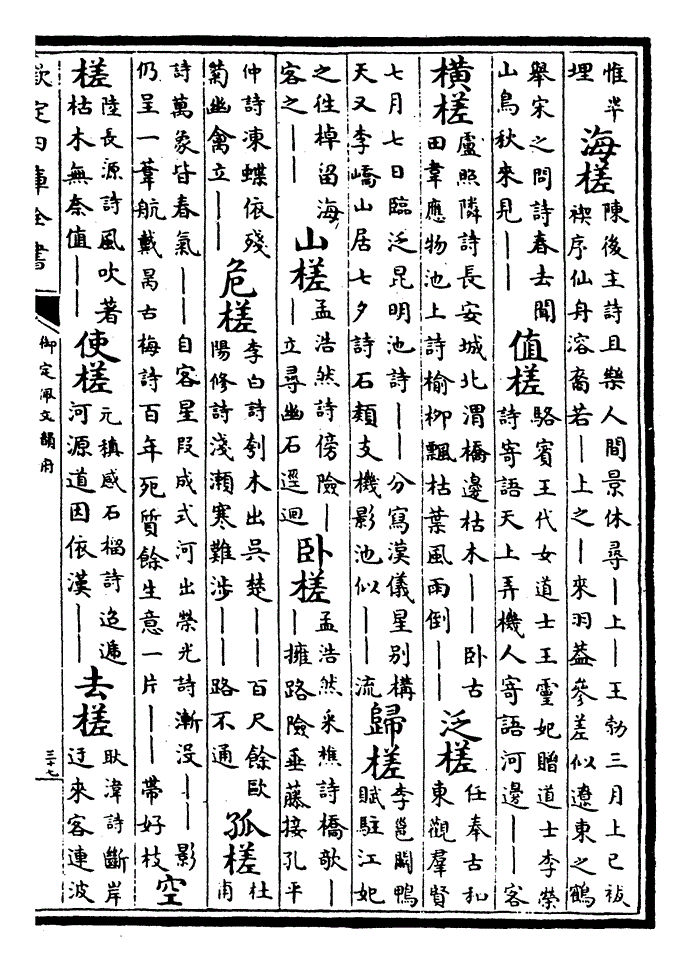 惟埋 海槎 陳後主詩且樂人間景休尋丨上丨王勃三月上巳祓禊序仙舟溶裔若丨上之丨來羽葢參差似遼東之鶴
舉宋之問詩春去聞山鳥秋來見丨丨 值槎 駱賓王代女道士王霊妃贈道士李榮詩寄語天上弄機人寄語河邊丨丨客
橫槎 盧照隣詩長安城北渭橋邊枯木丨丨卧古田韋應物池上詩榆柳飄枯葉風雨倒丨丨 泛槎 任奉古和東觀羣賢
七月七日臨泛昆明池詩丨丨分寫漢儀星别搆天又李嶠山居七夕詩石類支機影池似丨丨流 歸槎 李邕鬭鴨賦駐江妃
之往棹留海客之丨丨 山槎 孟浩然詩傍險丨丨立尋幽石逕迴 卧槎 孟浩然采樵詩橋欹丨丨擁路險垂藤接孔平
仲詩凍蝶依殘菊幽禽立丨丨 危槎 李白詩刳木出吳楚丨丨百尺餘歐陽修詩淺瀬寒難涉丨丨路不通 孤槎 杜甫
詩萬象皆春氣丨丨自客星叚成式河出榮光詩漸没丨丨影仍呈一葦航戴昺古梅詩百年死質餘生意一片丨丨帶好枝 空
槎 陸長源詩風吹著枯木無奈值丨丨 使槎 元稹感石榴詩迢遞河源道因依漢丨丨 去槎 耿湋詩斷岸迂來客連波
欽定四庫全書
御定佩文韻府
三十七